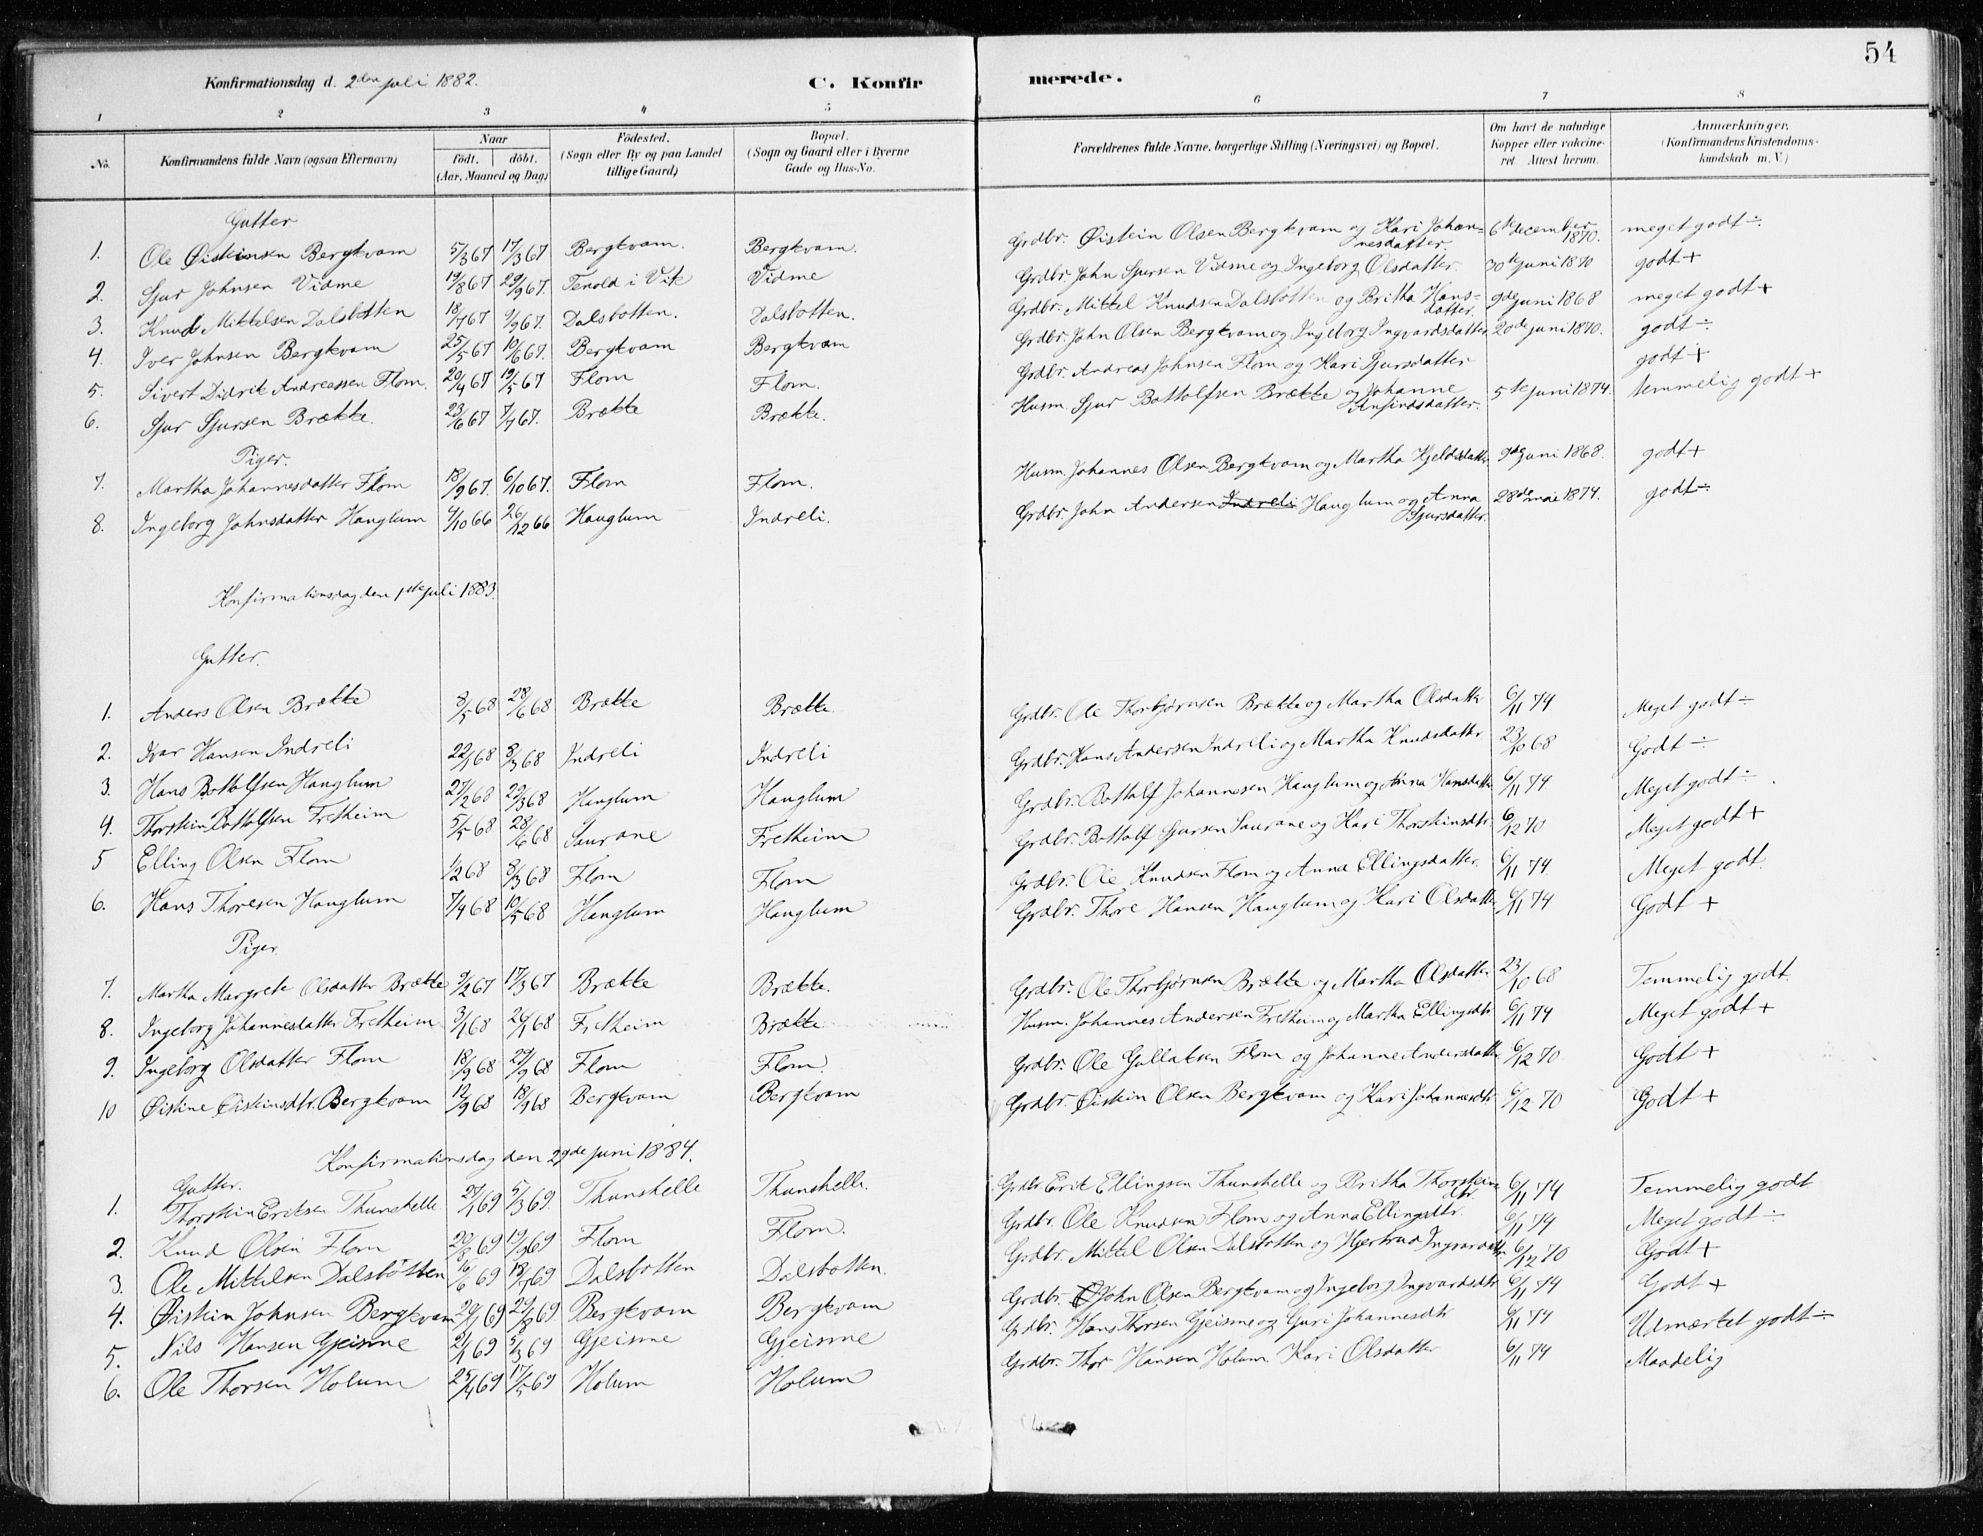 54
Konfirmationsdag d. 2den juli 1882. C. Konfirmerede.
1 2 3 4 5 6 7 8
No. Konfirmandens fulde Navn (ogsaa Efternavn) Naar født. døbt. (Aar, Maaned og Dag) Fødested. (Sogn eller By og paa Landet tillige Gaard) Bopæl. (Sogn og Gaard eller i Byerne Gade og Hus-No. Forældrenes fulde Navne, borgerlige Stilling (Næringsvei) og Bopæl. Om havt de naturlige Kopper eller vakcineret Attest herom. Anmærkninger. (Konfirmandens Kristendomskundskab m. V.)
Gutter
1. Ole Øistensen Bergkvam 5/3 67 17/3 67 Bergkvam. Bergkvam. Grdbr. Øistein Olsen Bergkvam og Kari Johannesdatter. 6te december 1870. meget godt ÷
2. Sjur Johnsen Vidme 19/8 67 29/9 67. Tenold i Vik Vidme Grdbr. John Sjursen Vidme og Ingeborg Olsdatter. 30te juni 1870 godt +
3. Knud Mittelsen Dalsbotten 18/7 67 9/9 67. Dalsbotten. Dalsbotten. Grdbr. Mittel Knudsen Dalsbotten og Britha Hansdatter. 9de juni 1868 meget godt +
4. Iver Johnsen Bergkvam 25/5 67 10/6 67. Bergkvam Bergkvam Grdbr. John Olsen Bergkvam og Ingeborg Ingvardsdatter 20de juni 1870. godt ÷
5. Sivert Didrik Andreassen Flom. 20/4 67 19/5 67 Flom Flom. Grdbr. Andreas Johnsen Flom og Kari Sjursdatter godt +
6. Sjur Sjursen Brække. 23/6 67 7/7 67. Brække Brække. Husm. Sjur Bottolfsen Brække og Johanne Anfindsdatter. 5te juni 1874. temmelig godt +
Piger.
7. Martha Johannesdatter Flom 18/9 67. 6/10 67. Flom Flom. Husm. Johannes Olsen Bergkvam og Martha Kjeldsdatter 9de juni 1868. godt +
8. Ingeborg Johnsdatter Hauglum 4/10 66 26/12 66 Hauglum Indreli. Grdbr. John Andersen Indreli Hauglum og Anna Sjursdatter. 28de mai 1874. godt ÷
Konfirmationsdag den 1ste juli 1883.
Gutter.
1. Anders Olsen Brække 8/5 68 28/6 68 Brække Brække. Grdbr. Ole Thorbjørnsen Brække og Martha Olsdatter 6/11 74 Meget godt ÷
2. Ivar Hansen Indreli 22/1 68 8/3 68 Indreli Indreli Grdbr. Hans Andersen Indreli og Martha Knudsdattr 23/10 68 Godt ÷
3. Hans Bottolfsen Hauglum 27/2 68 29/3 68 Hauglum Hauglum Grdbr. Bottolf Johannesen Hauglum og Anna Hansdatter 6/11 74 Meget godt ÷
4. Thorstein Bottolfsen Fretheim 5/5 68 28/6 68 Saurane Fretheim Grdbr. Bottolf Sjursen Saurane og Kari Thorstinsdtr. 6/12 70 Meget godt +
5 Elling Olsen Flom 1/2 68 8/3 68 Flom Flom Grdbr. Ole Knudsen Flom og Anna Ellingsdatter. 6/11 74 Meget godt.
6. Hans Thoresen Hauglum 7/4 68 10/5 68 Hauglum Hauglum Grdbr. Thore Hansen Hauglum og Kari Olsdatter 6/11 74 Godt +
Piger.
7. Martha Margrete Olsdatter Brække 9/2 67 17/3 67 Brække Brække. Grdbr. Ole Thorbjørnsen Brække og Martha Olsdatter 23/10 68 Temmelig godt.
8. Ingeborg Johannesdatter Fretheim 3/1 68 26/1 68 Fretheim Brække Husm. Johannes Andersen Fretheim og Martha Ellingsdtr 6/11 74 Meget godt +
9. Ingeborg Olsdatter Flom 18/9 68 27/9 68 Flom Flom. Grdbr. Ole Gullaksen Flom og Johanne Andersdatter 6/12 70 Godt +
10 Øistine Øistinsdtr. Bergkvam 12/9 68 18/ 68 Bergkvam Bergkvam Grdbr. Øistein Olsen Bergkvam og Kari Johannesdtr 6/12 70 Godt +
Konfirmationsdag den 29de juni 1884.
Gutter.
1. Thorstein Eriksen Thunshelle 24/1 69 5/3 69. Thunshelle Thunshelle. Grdbr Erik Ellingsen Thunshelle og Britha Thorsteinsdtr. 6/11 74 Temmelig godt
2. Knud Olsen Flom 20/8 69 19/9 69 Flom Flom. Grdbr. Ole Knudsen Flom og Anna Ellingsdtr. 6/11 74 Meget godt ÷
3. Ole Mittelsen Dalsbotten 16/6 69 18/7 69 Dalsbotten Dalsbotten. Grdbr. Mittel Olsen Dalsbotten og Hjertrud Ingvardsdtr 6/12 70 Godt +
4. Øistein Johnsen Bergkvam 20/ 69 29/8 69 Bergkvam Bergkvam Grdbr. John Olsen Bergkvam og Ingeborg Ingvardsdtr 6/11 74 Godt +
5. Nils Hansen Gjeisme 2/1 69 5/3 69 Gjeisme Gjeisme Grdbr. Hans Thorsen Gjeisme og Guri Johannesdtr 6/11 74 Udmærket godt ÷
6. Ole Thorsen Holum 25/4 69 17/5 69 Holum Holum Grdbr. Thor Hansen Holum. Kari Olsdatter 6/11 74 Maadelig